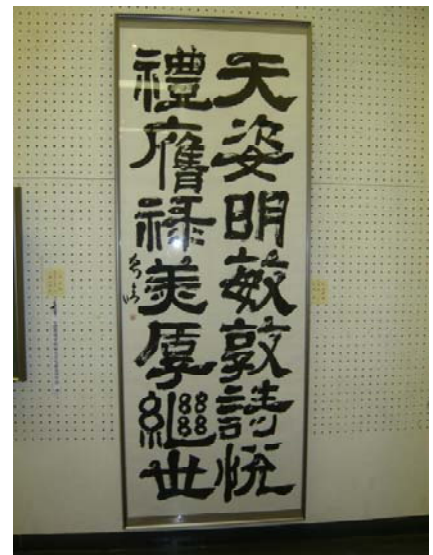 天姿明敏敦詩悅
禮膺祿美厚繼世